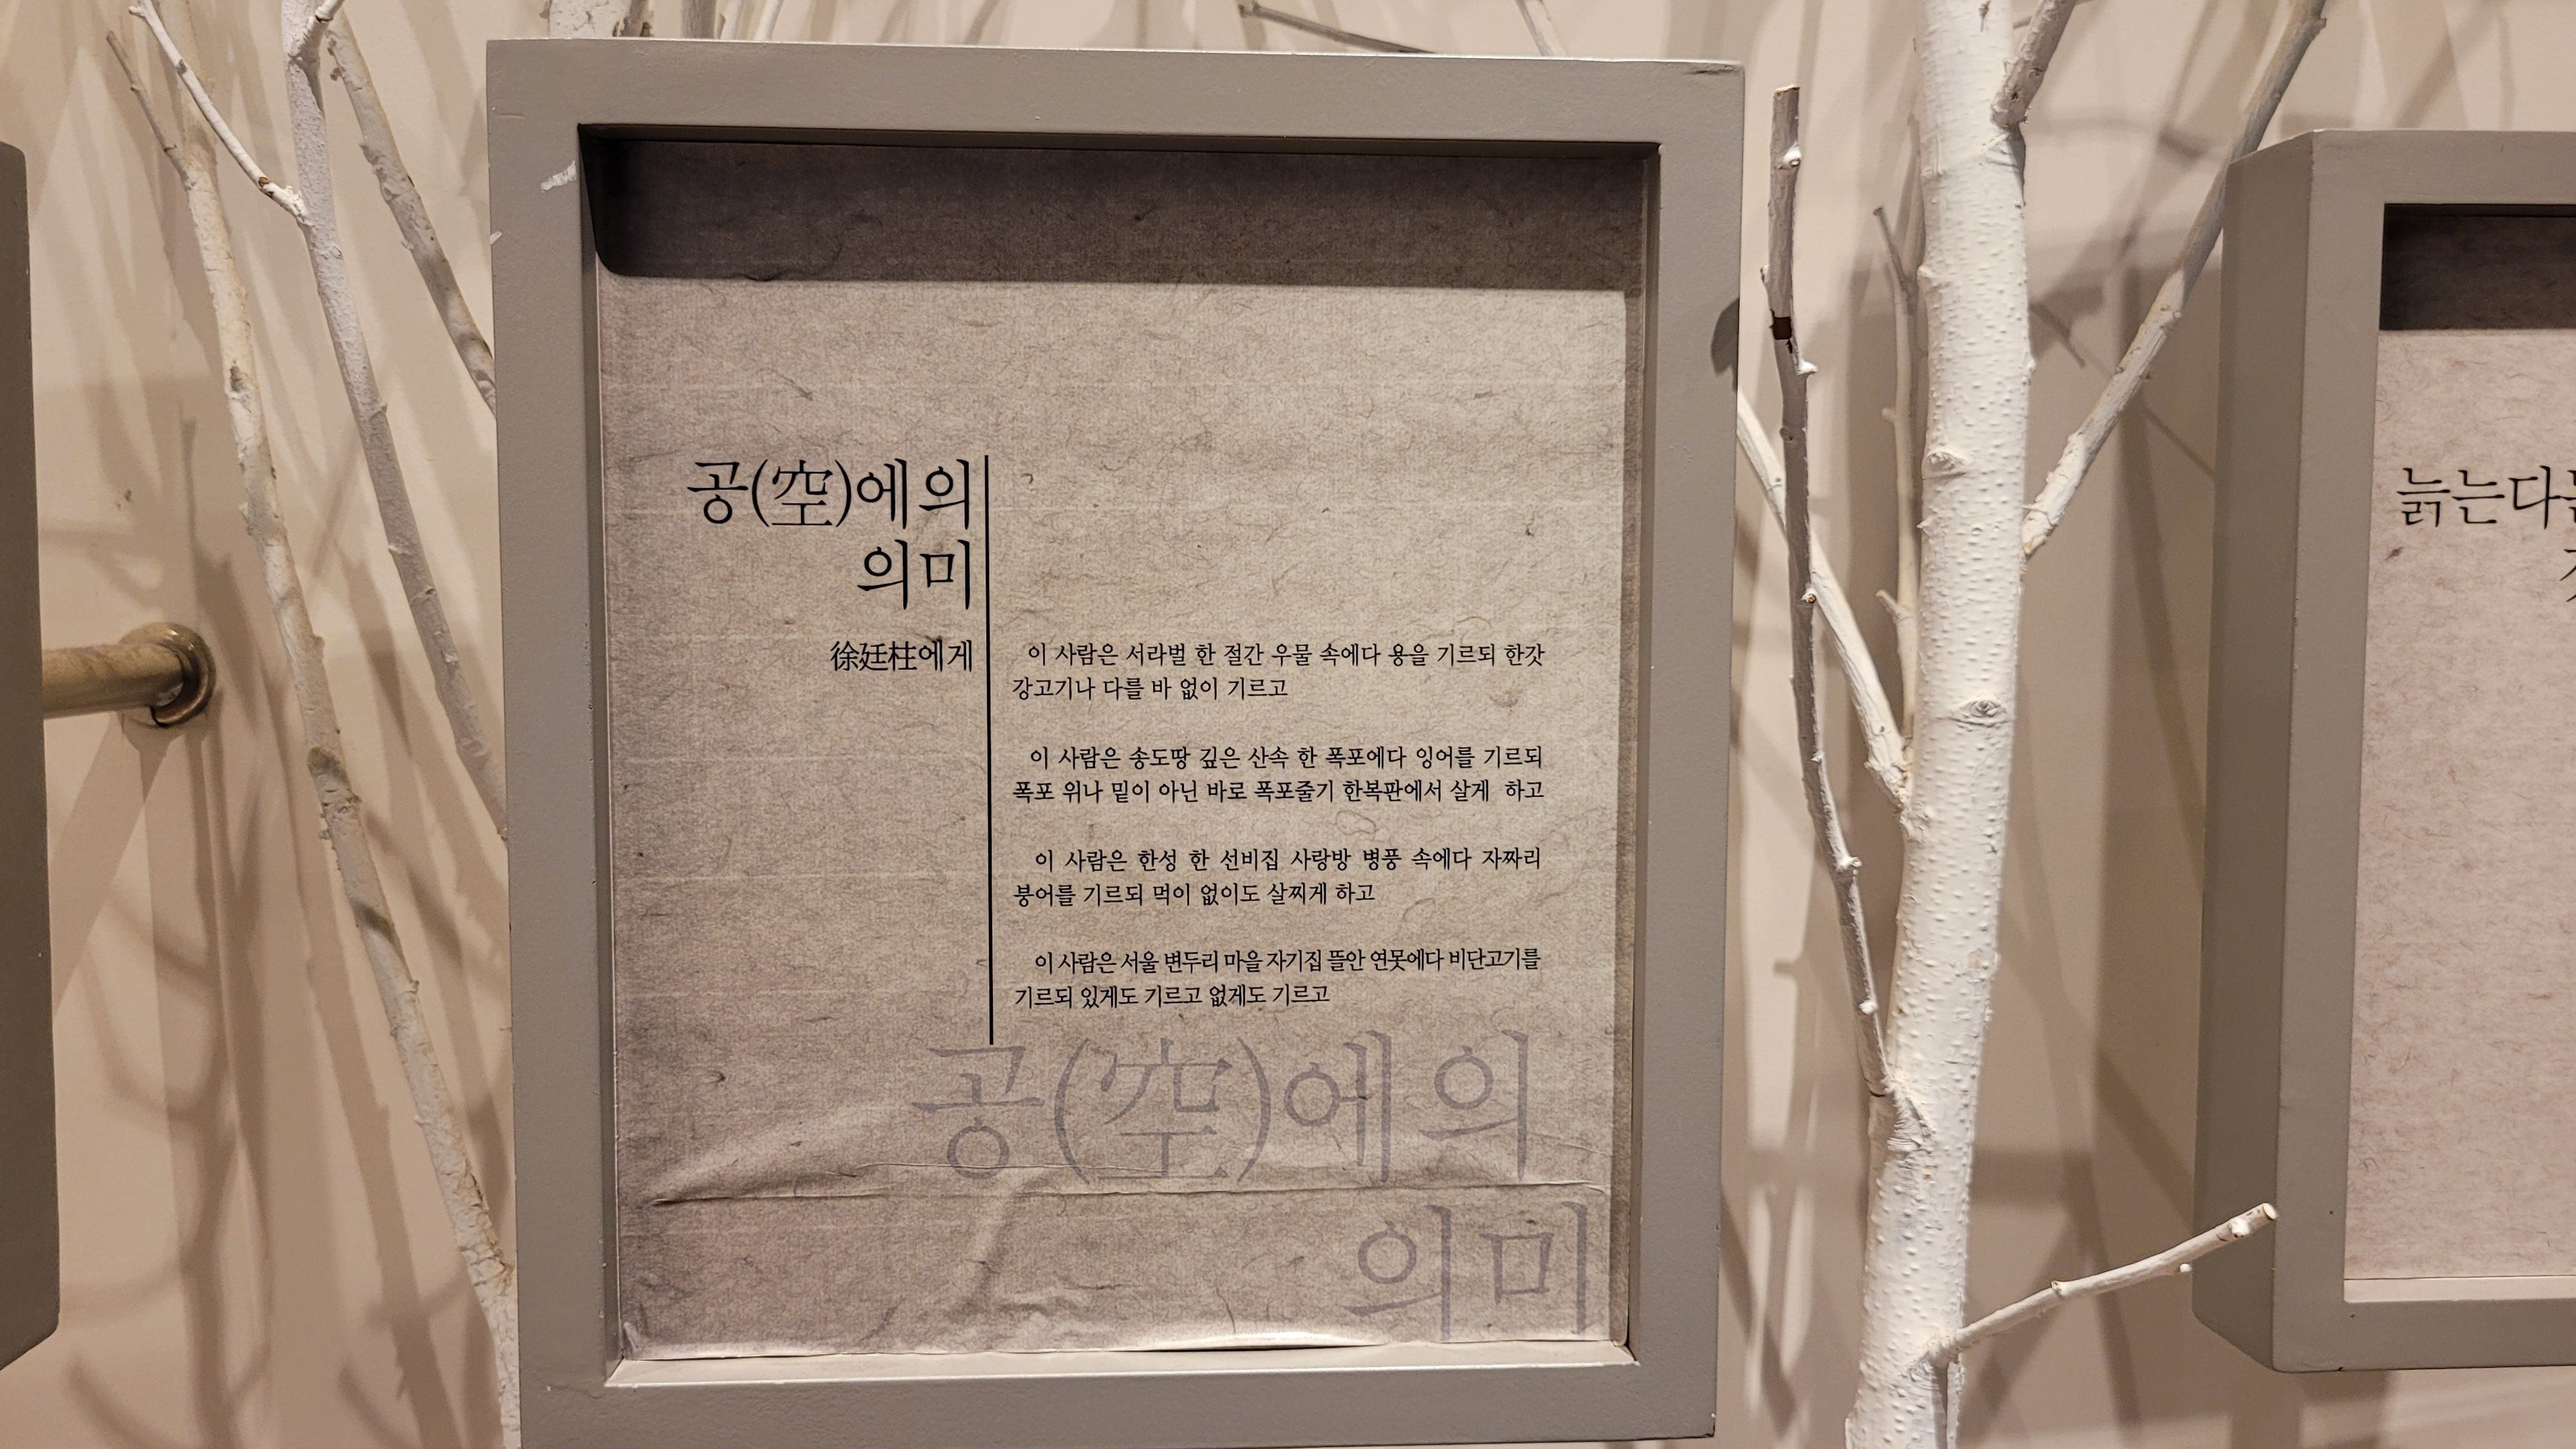 공(空)에의
의미
徐廷柱에게
이 사람은 서라벌 한 절간 우물 속에다 용을 기르되 한갓
강고기나 다를 바 없이 기르고
이 사람은 송도땅 깊은 산속 한 폭포에다 잉어를 기르되
폭포 위나 밑이 아닌 바로 폭포줄기 한복판에서 살게 하고
이 사람은 한성 한 선비집 사랑방 병풍 속에다 자짜리
붕어를 기르되 먹이 없이도 살찌게 하고
이 사람은 서울 변두리 마을 자기집 뜰안 연못에다 비단고기를
기르되 있게도 기르고 없게도 기르고
공(空)에의
의미
늙는다